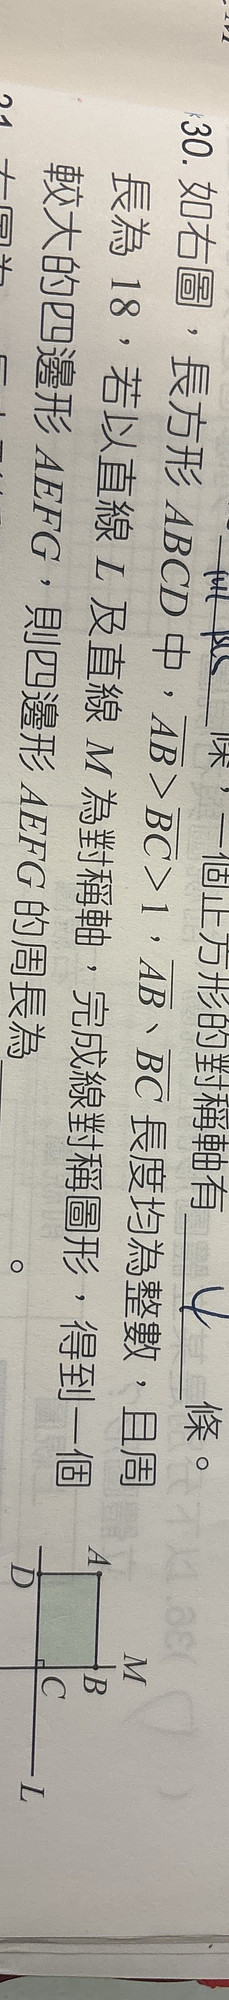 條，一個正方形的對稱軸有 4 條。
30. 如右圖，長方形 ABCD 中，AB > BC > 1，AB、BC 長度均為整數，且周
長為 18，若以直線 L 及直線 M 為對稱軸，完成線對稱圖形，得到一個
較大的四邊形 AEFG，則四邊形 AEFG 的周長為＿＿＿。
M
A
B
D
C
L